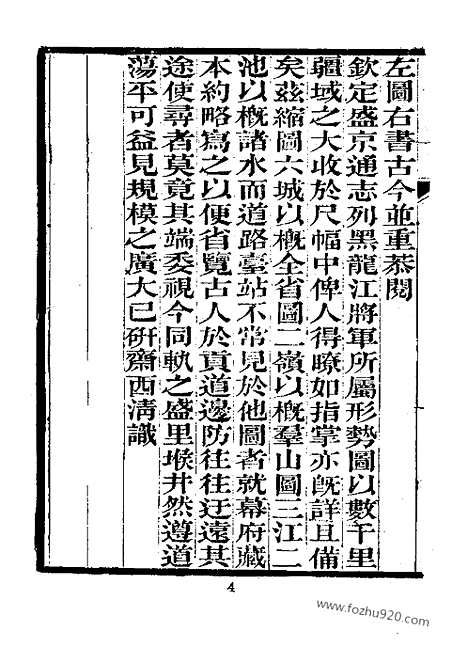 左圖右書古今並重恭閱
欽定盛京通志列黑龍江將軍所屬形勢圖以數千里
疆域之大收於尺幅中俾人得瞭如指掌亦旣詳且備
矣茲縮圖六城以槪全省圖二嶺以槪羣山圖三江二
池以槪諸水而道路臺站不常見於他圖者就幕府藏
本約略寫之以便省覽古人於貢道邊防往往迂遠其
途使尋者莫竟其端委視今同軌之盛里堠井然遵道
蕩平可益見規模之廣大已硏齋西清識
4
www.fozhu920.com